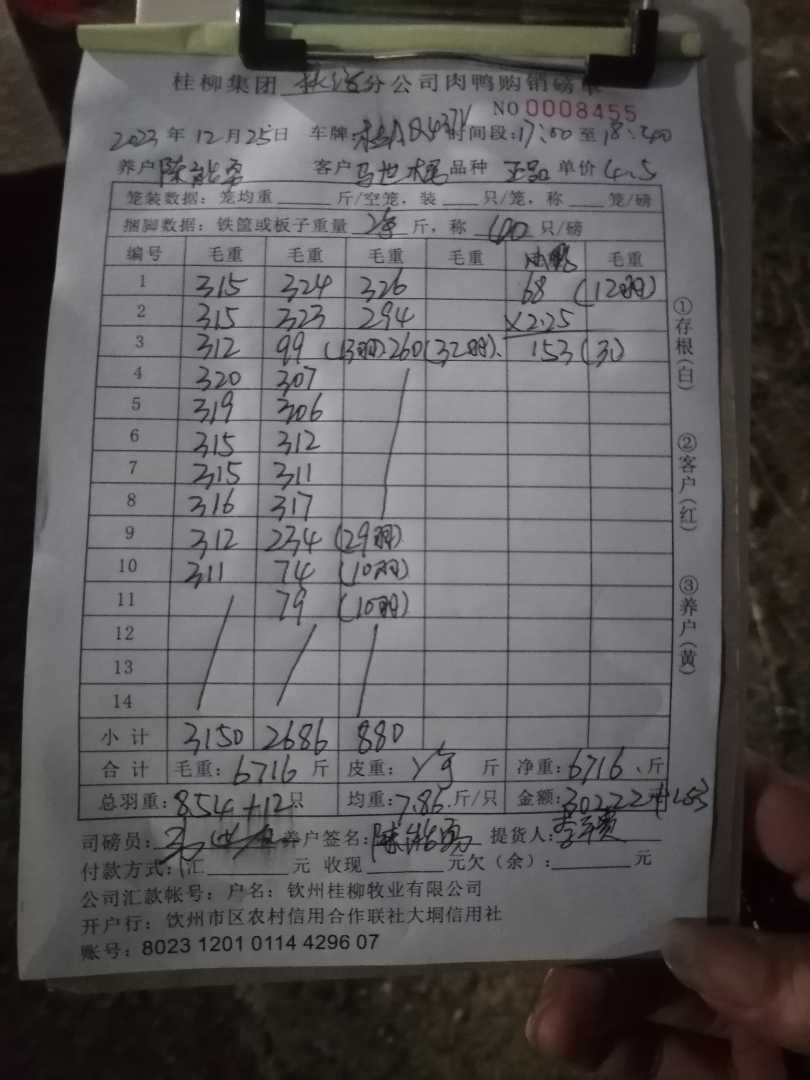 桂柳集团 分公司肉鸭购销磅单
NO 0008455
2023年12月25日 车牌: 时间段:17:00至18:40
养户 陈能勇 客户 品种 正品 单价 4.5
笼装数据: 笼均重 斤/空笼, 装 只/笼, 称 笼/磅
捆脚数据: 铁筐或板子重量 斤, 称 40 只/磅
编号 毛重 毛重 毛重 毛重 毛重
1 315 324 326 68 (12羽)
2 315 323 294 ×2.25
3 312 99 (13羽) 260 (32羽). 153 (元)
4 320 307
5 319 306
6 315 312
7 315 311
8 316 317
9 312 234 (29羽)
10 311 74 (10羽)
11 79 (10羽)
12
13
14
小计 3150 2686 880
合计 毛重: 6716 斤 皮重: 斤 净重: 6716.斤
总羽重: 854+12只 均重: 7.86.斤/只 金额: 30222元+153
司磅员: 养户签名: 陈能勇 提货人:
付款方式: 汇 元 收现 元欠(余): 元
公司汇款帐号: 户名: 钦州桂柳牧业有限公司
开户行: 钦州市区农村信用合作联社大垌信用社
账号: 8023 1201 0114 4296 07
①存根(白)
②客户(红)
③养户(黄)